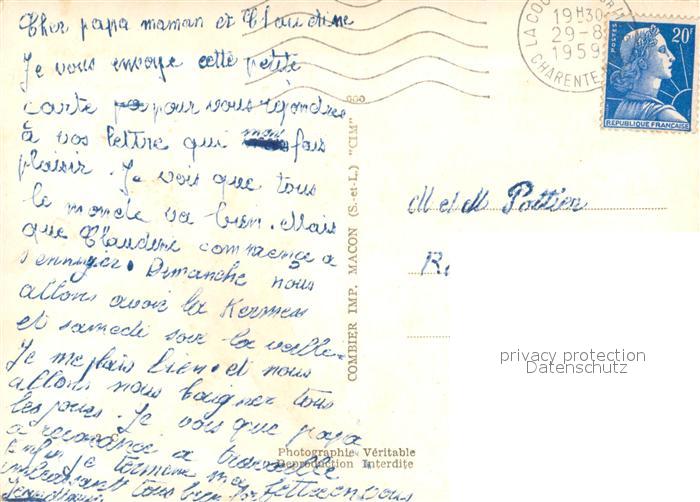 Cher papa maman et Claudine
Je vous envoye cette petite
carte pour vous répondre
à vos lettre qui mon fais
plaisir. Je vois que tous
le monde va bien. Mais
que Claudine commence a
s'ennuyer. Dimanche nous
allons avoir la Kermess
et samedi soir la veille
Je me plais bien et nous
allons nous baigner tous
les jours. Je vois que papa
a recommencé a travaille
Je termine ma lettre en vous
embrassant tous bien fort
Claudine
000
COMBIER IMP. MACON (S.-et-L.) "CIM"
Photographie Véritable
Reproduction Interdite
19H30
29-8
1959
CHARENTE
POSTES
20F
REPUBLIQUE FRANÇAISE
M et M Pottier
R
privacy protection
Datenschutz